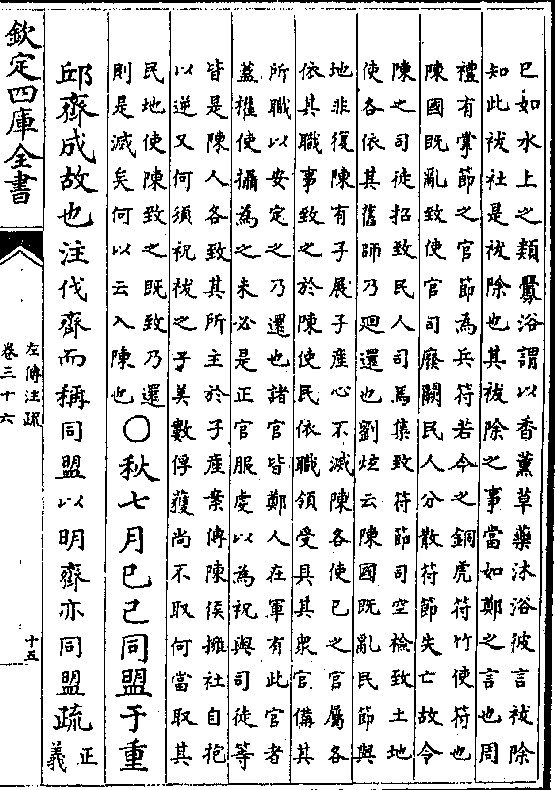 巳如水上之類釁浴謂以香薰草藥沐浴彼言祓除
知此祓社是祓除也其祓除之事當如鄭之言也周
禮有掌節之官節為兵符若今之銅虎符竹使符也
陳國既亂致使官司廢闕民人分散符節失亡故令
陳之司徒招致民人司馬集致符節司空檢致土地
使各依其舊師乃迴還也劉炫云陳國既亂民節與
地非復陳有子展子產心不滅陳各使已之官屬各
依其職事致之於陳使民依職領受具其衆官備其
所職以安定之乃還也諸官皆鄭人在軍有此官者
蓋權使攝為之未必是正官服虔以為祝與司徒等
皆是陳人各致其所主於子產案傳陳侯擁社自抱
以逆又何須祝祓之子美數俘獲尚不取何當取其
民地使陳致之既致乃還
則是滅矣何以云入陳也
〇秋七月巳己同盟于重
邱齊成故也注伐齊而稱同盟以明齊亦同盟疏
正
義
欽定四庫全書
左傳注疏
卷三十六
十五